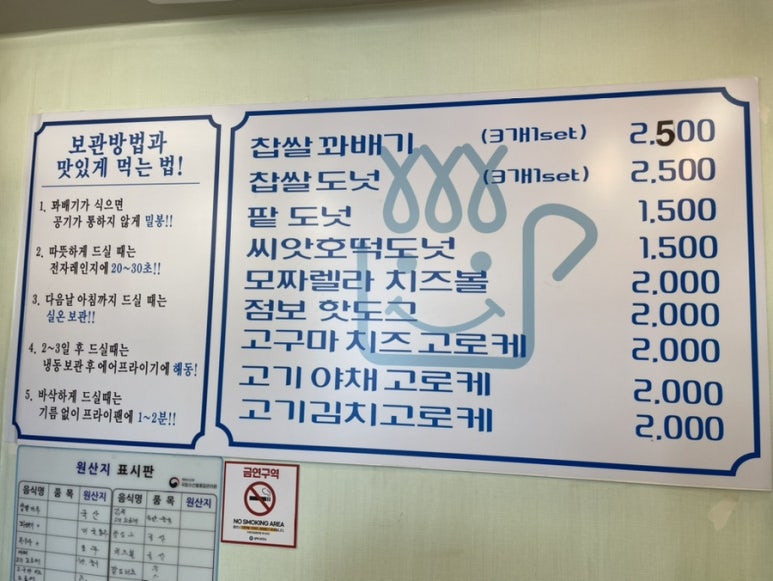 보관방법과
맛있게 먹는 법!
1. 꽈배기가 식으면
공기가 통하지 않게 밀봉!!
2. 따뜻하게 드실 때는
전자레인지에 20~30초!!
3. 다음날 아침까지 드실 때는
실온 보관!!
4. 2~3일 후 드실때는
냉동 보관 후 에어프라이기에 해동!
5. 바삭하게 드실때는
기름 없이 프라이팬에 1~2분!!
찹쌀 꽈배기 (3개1set) 2,500
찹쌀 도넛 (3개1set) 2,500
팥 도넛 1,500
씨앗호떡도넛 1,500
모짜렐라 치즈볼 2,000
점보 핫도그 2,000
고구마 치즈 고로케 2,000
고기 야채 고로케 2,000
고기김치고로케 2,000
원산지 표시판
음식명 품목 원산지 음식명 품목 원산지
금연구역
NO SMOKING AREA